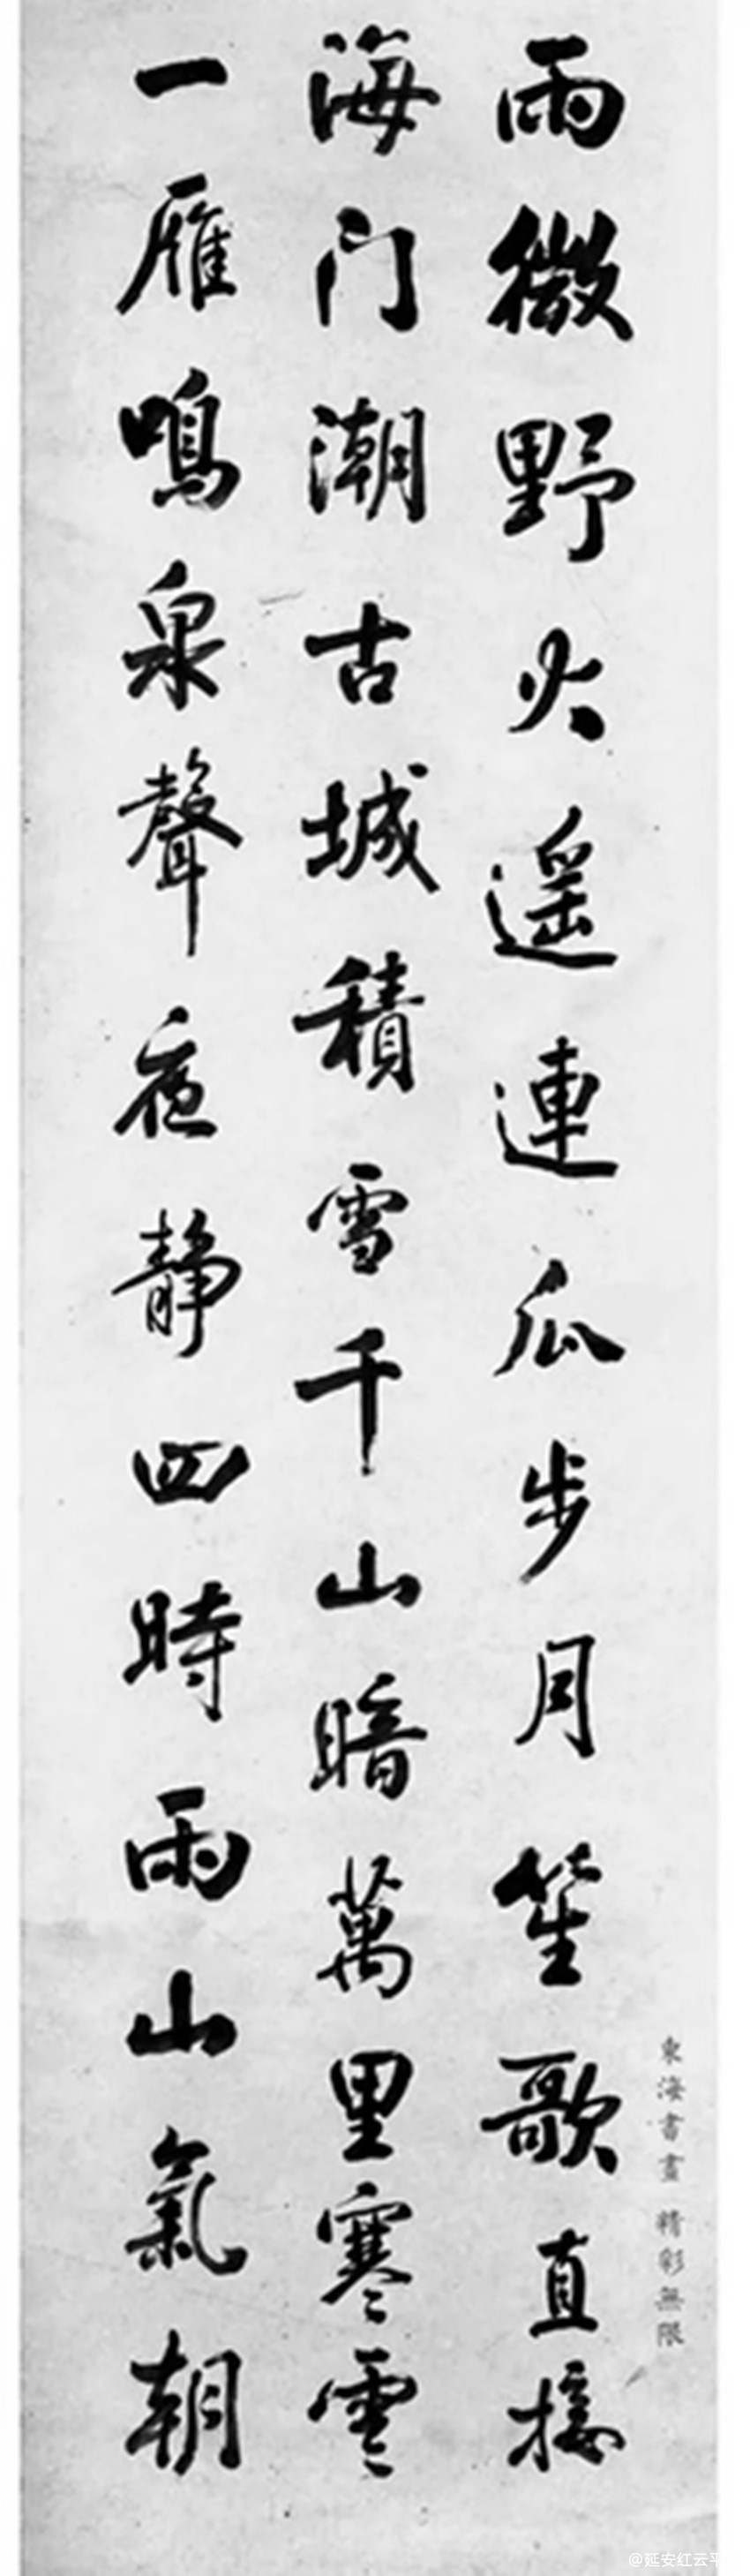 雨微野火遥連瓜步月笙歌直接
海门潮古城積雪千山暗萬里寒雲
一雁鳴泉聲夜静四時雨山氣朝
東海書畫 精彩無限
@延安红云平